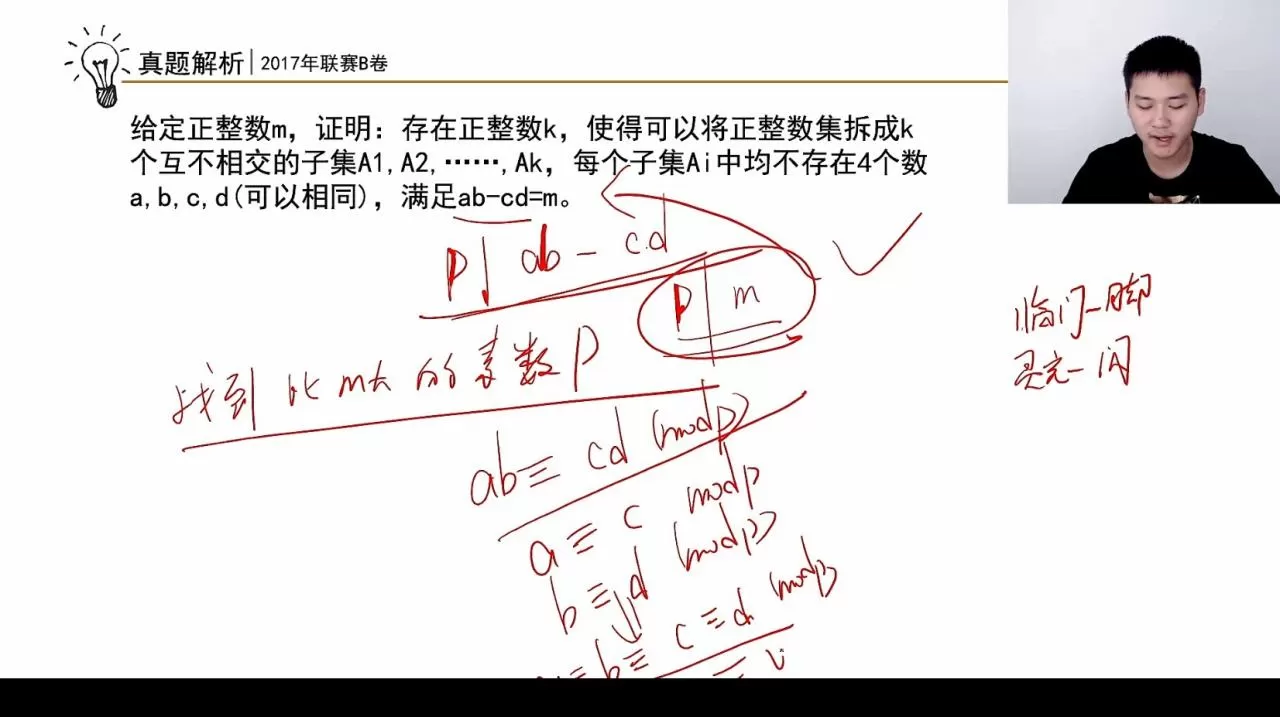 真题解析|2017年联赛B卷
给定正整数m，证明：存在正整数k，使得可以将正整数集拆成k
个互不相交的子集A1,A2,……,Ak，每个子集Ai中均不存在4个数
a,b,c,d(可以相同)，满足ab-cd=m。
P| ab-cd
P| m
找到比m大的素数p
临门一脚
灵光一闪
ab≡cd (modp)
a≡c modp
b≡d (modp)
b≡c≡d (modp)